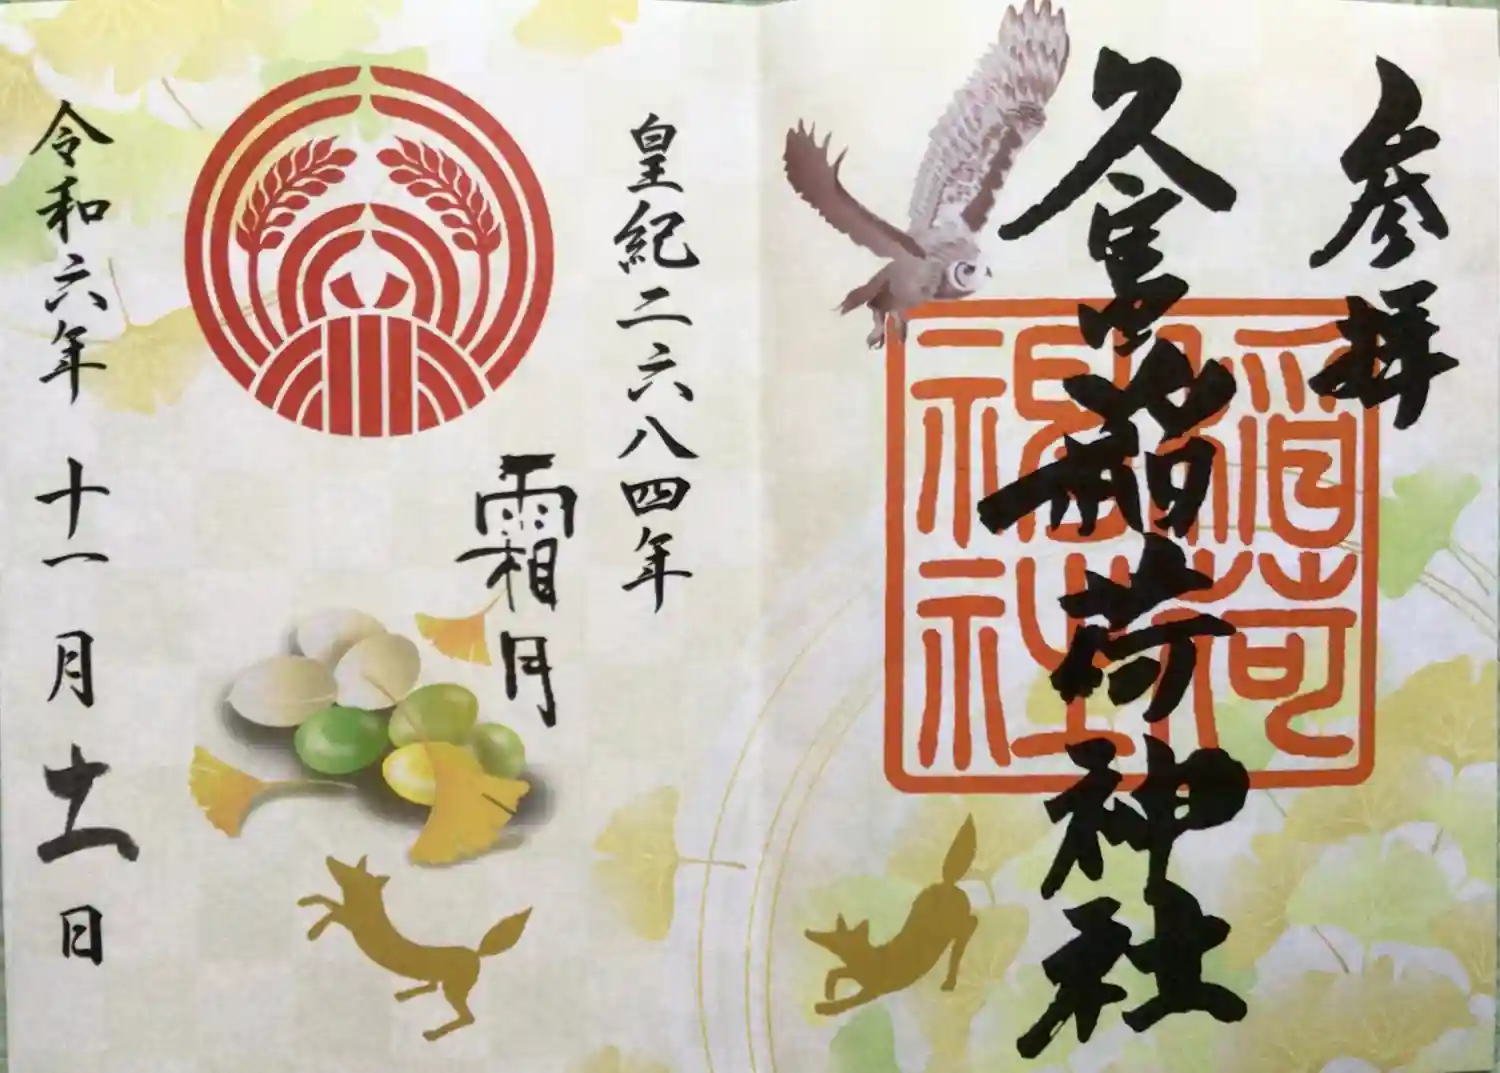 参拝
久富稲荷神社
稲荷
神社
皇紀二六八四年
霜月
令和六年 十一月 日